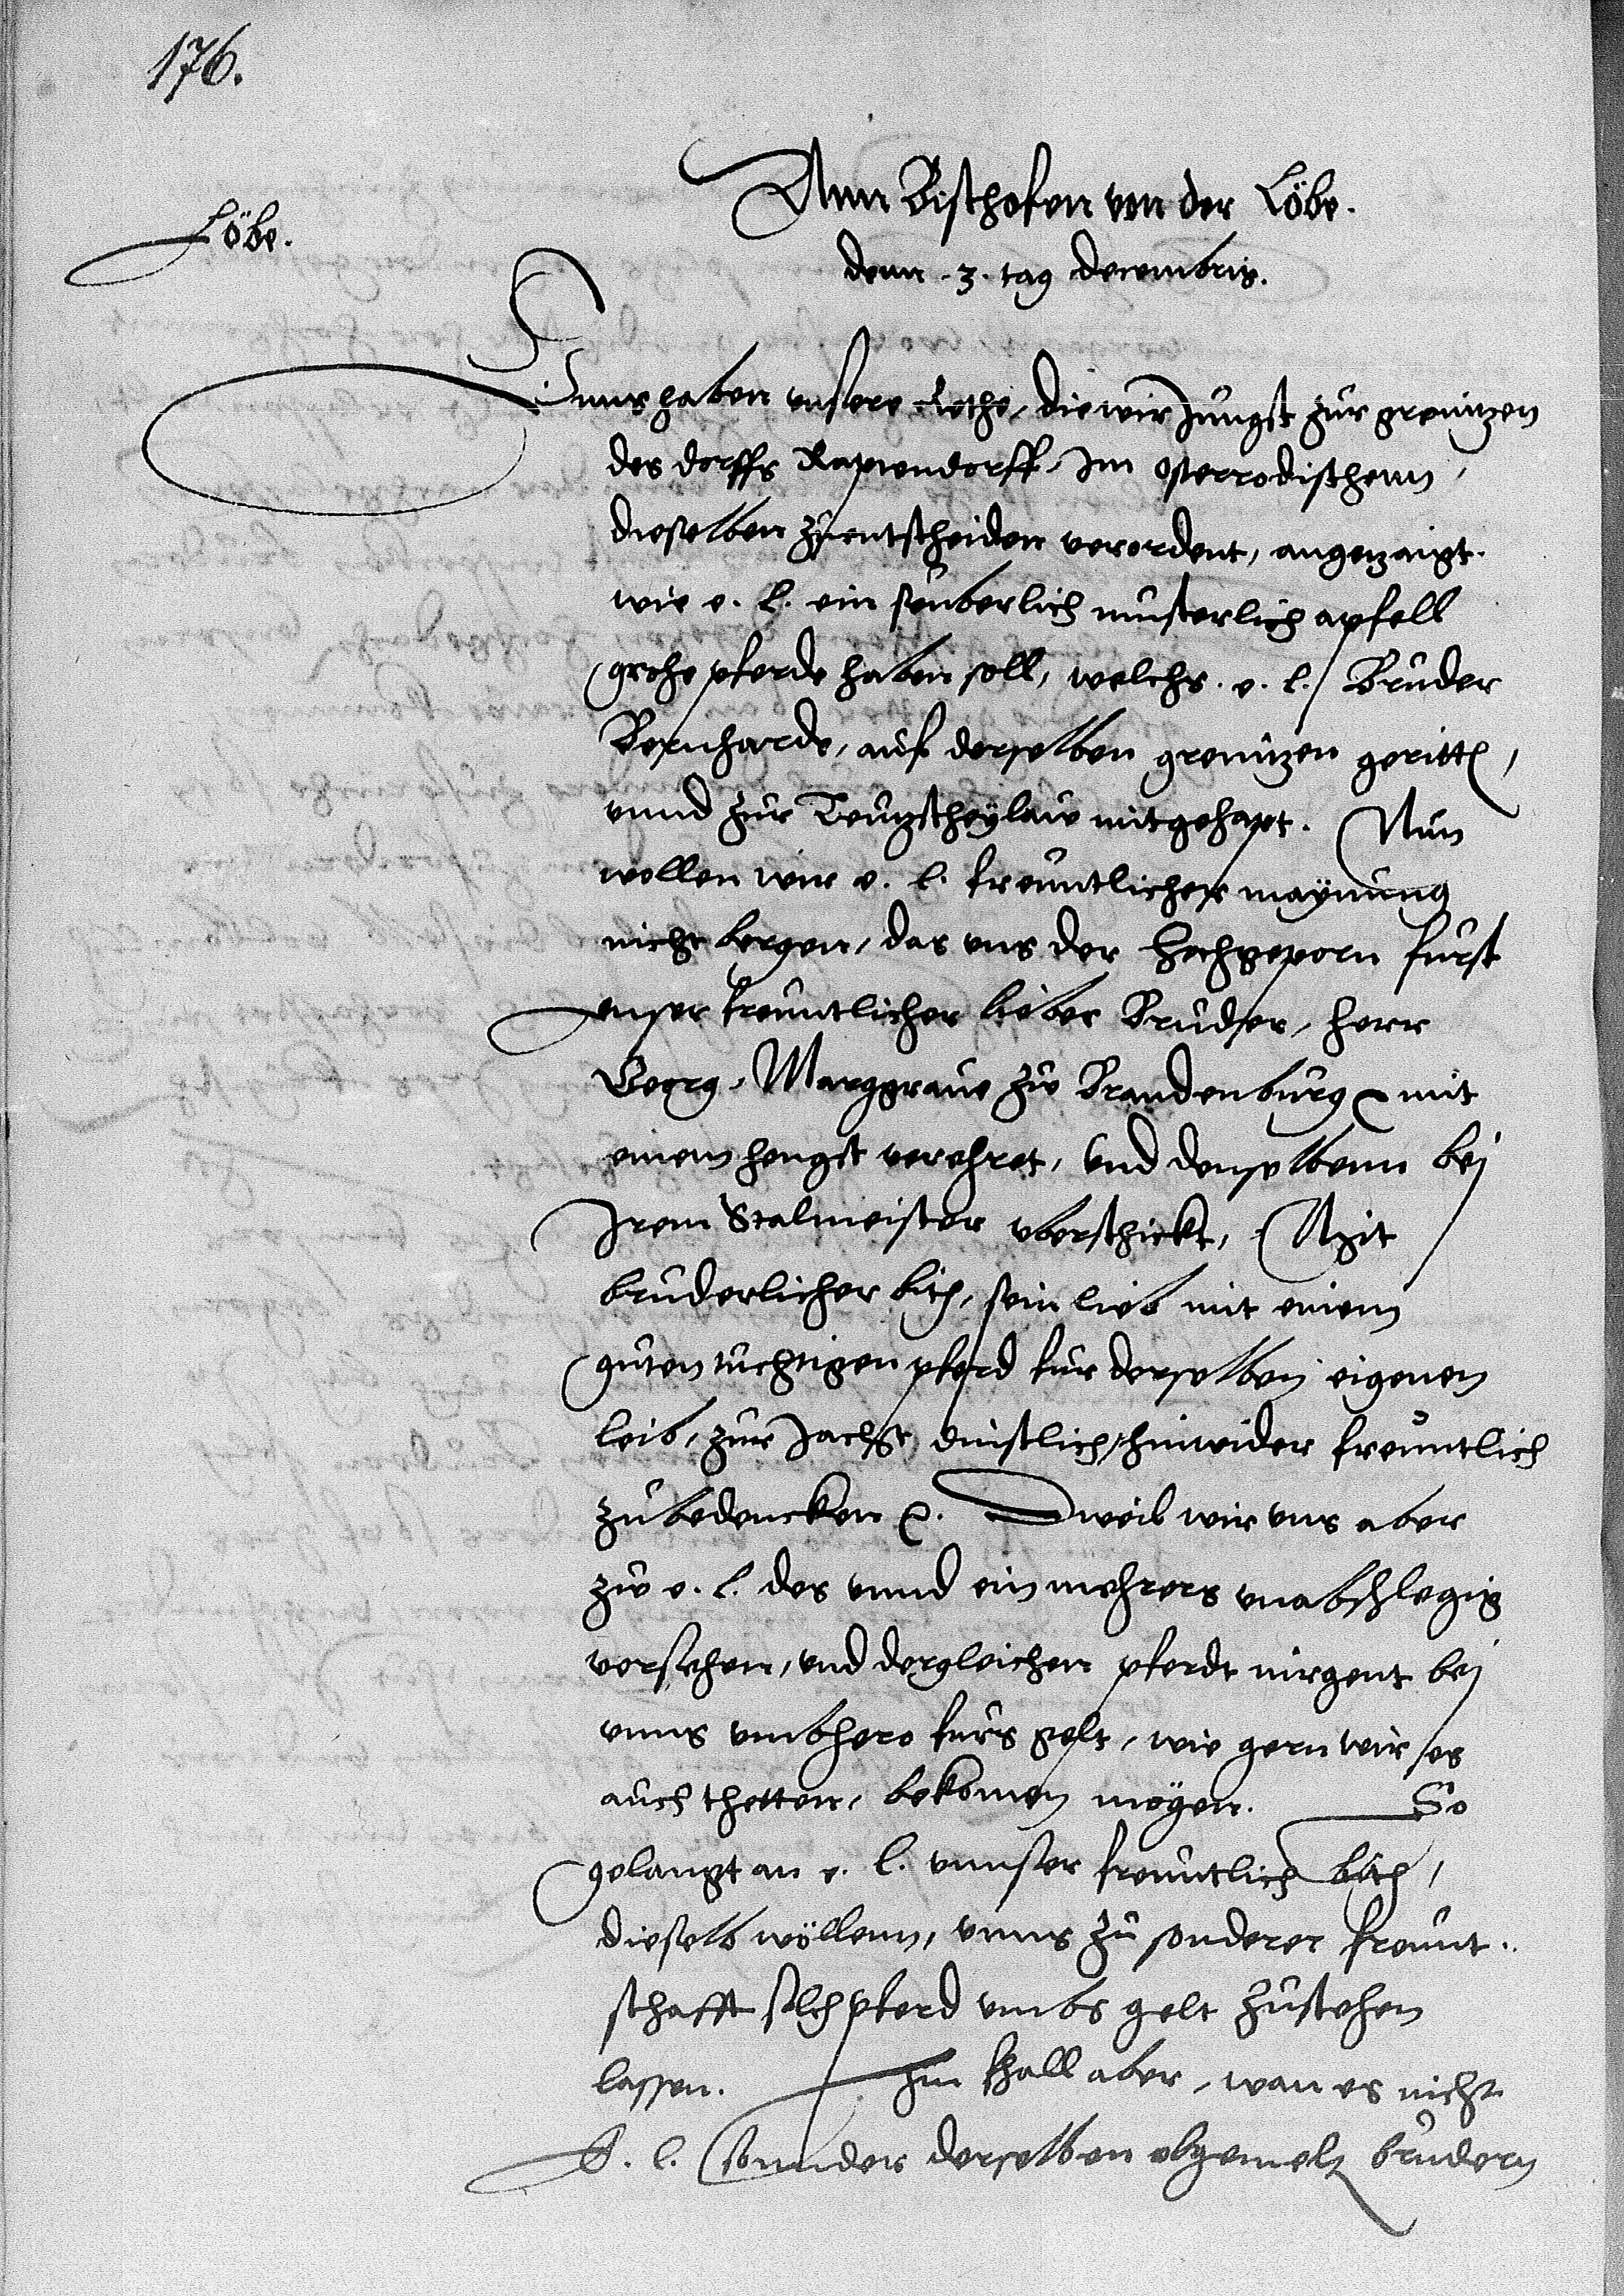 176.
Ann Bischofen von der Löbe.
Löbe.
denn .3. tag Decembris.
Unns haben unsere Rethe, die wir Jungst zur grenitzen
des dorffs Rapendorff, Im Osterrodischenn,
dieselben zuentscheiden verordent, angezaigt.
wie e. l. ein seuberlich musterlich apfell
grohe pferde haben soll, welchs. e. l. Bruder
Bernharde, auf derselben grenitzen geritten,
unnd zur Deutzscheylaw mitgehapt. Nun
wollen wir e. l. freuntlicher maynung
nicht bergen, das uns der Hochgeporn furst
unser freuntlicher lieber Bruder, herr
Georg, Marggraue zw Brandenburg mit
einem hengst verehret, und denselbenn bei
Irem Stalmeister uberschickt, Mit
bruderlicher bith, sein lieb mit einem
guten tuchtigen pferd fur derselben eigenen
leib, zur Jacht dinstlich, hinwider freuntlich
zubedencken etc. Dweil wir uns aber
zw e. l. des unnd ein mehrers unabschlegig
versehen, und dergleichen pferdt nirgent bei
unns umbhero furs gelt, wie gern wir es
auch thetten, bekomen mögen. So
gelangt an e. l. unnser freuntlich bith,
dieselb wöllenn, unns zu sonderer freunt-
schafft solch pferd umbs gelt zustehen
lassen. Im fhall aber, wan es nicht
E. l. sonnder derselben obgemelt brudern